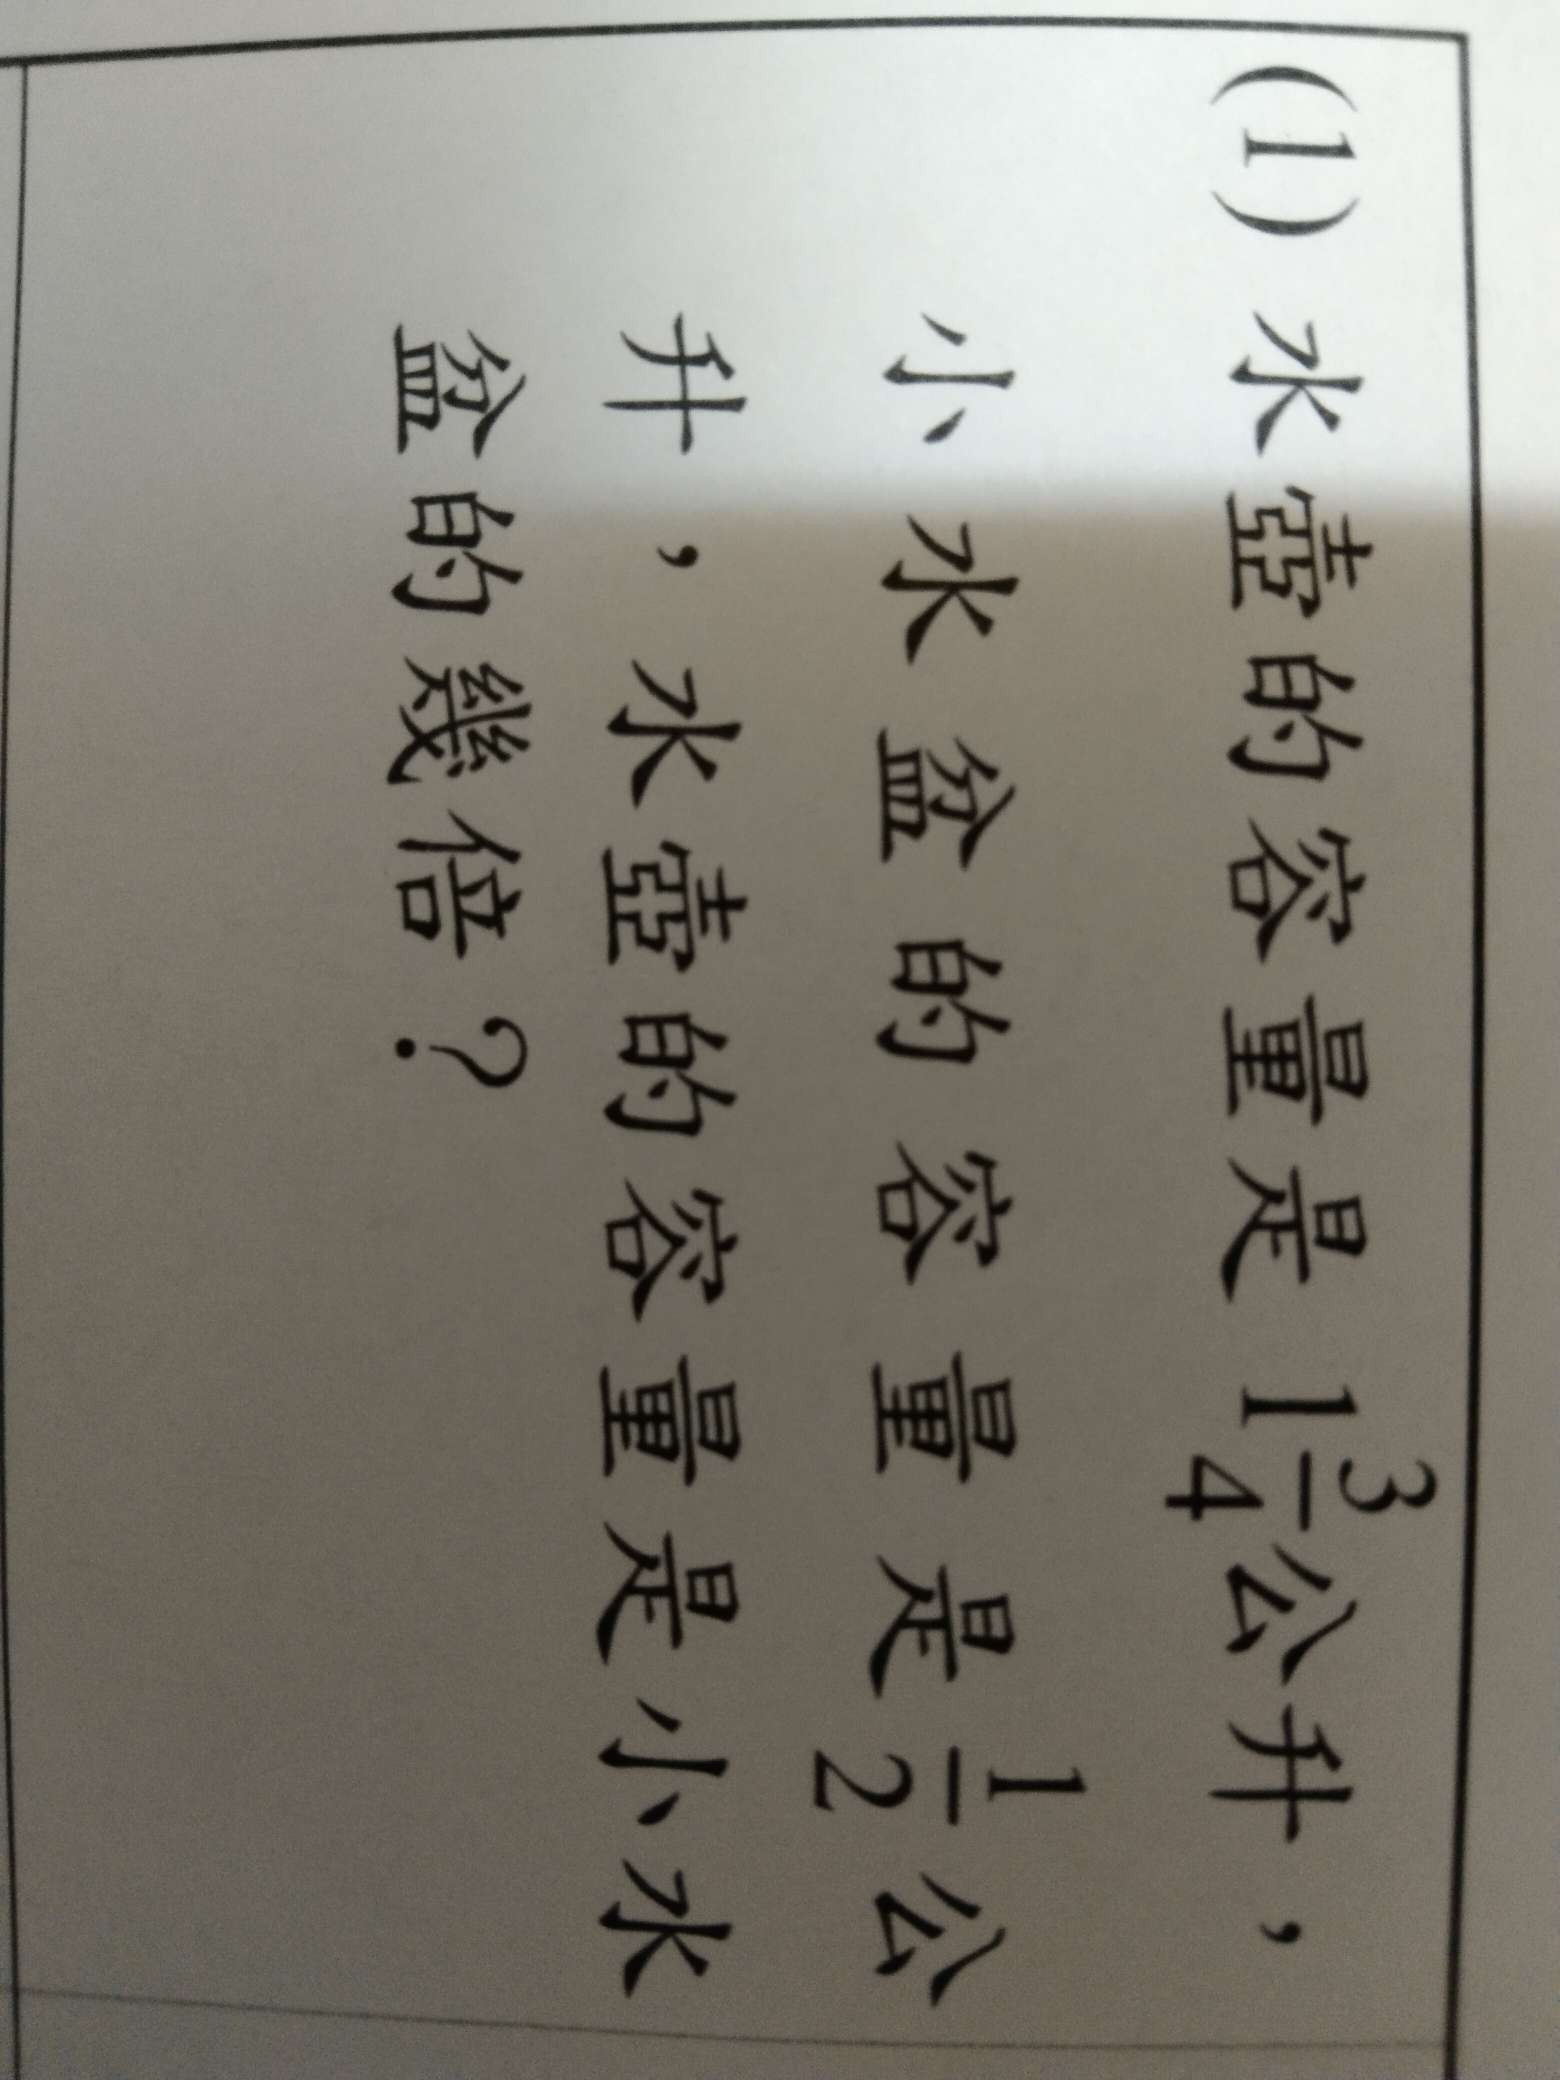 (1) 水壺的容量是 1 3/4 公升，
小水盆的容量是 1/2 公
升，水壺的容量是小水
盆的幾倍？